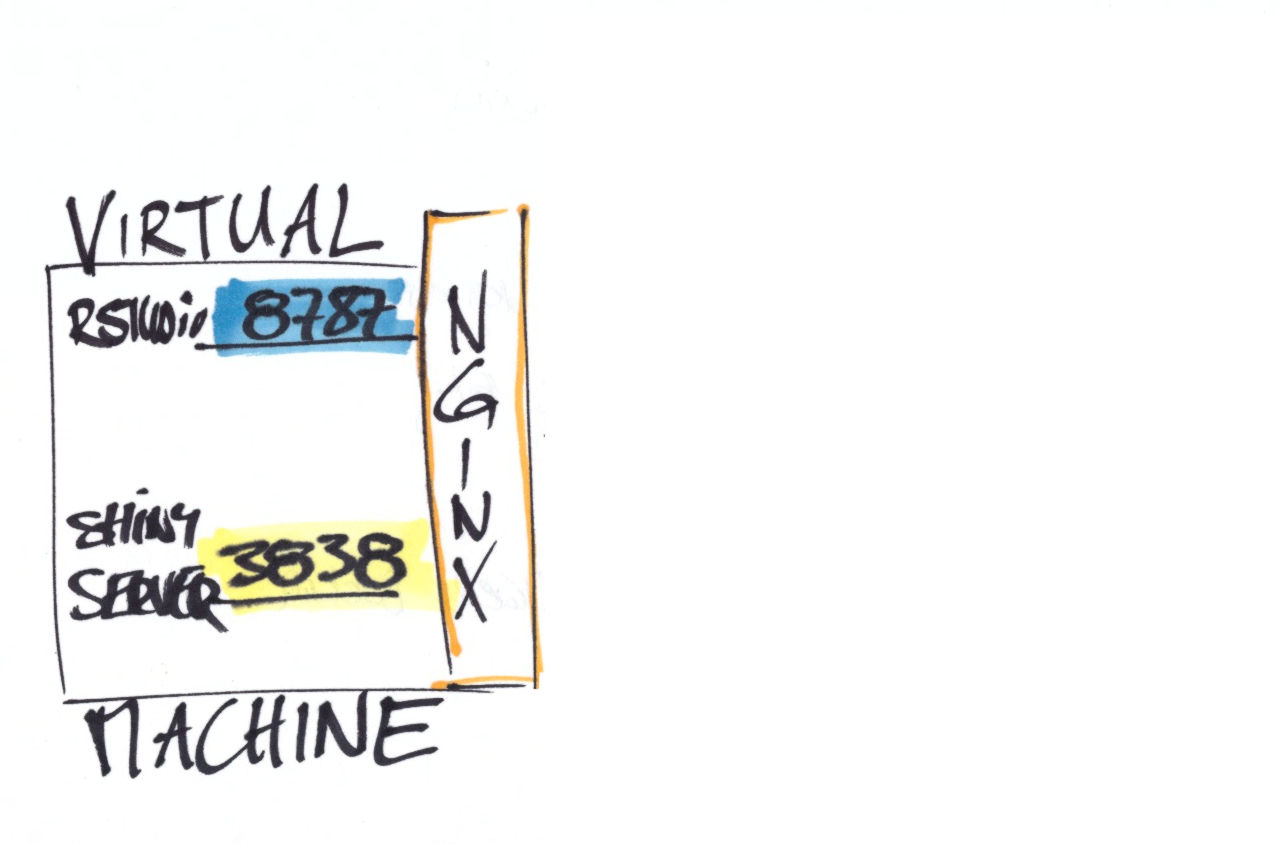 VIRTUAL
RSTUDIO 8787
SHINY
SERVER 3838
NGINX
MACHINE